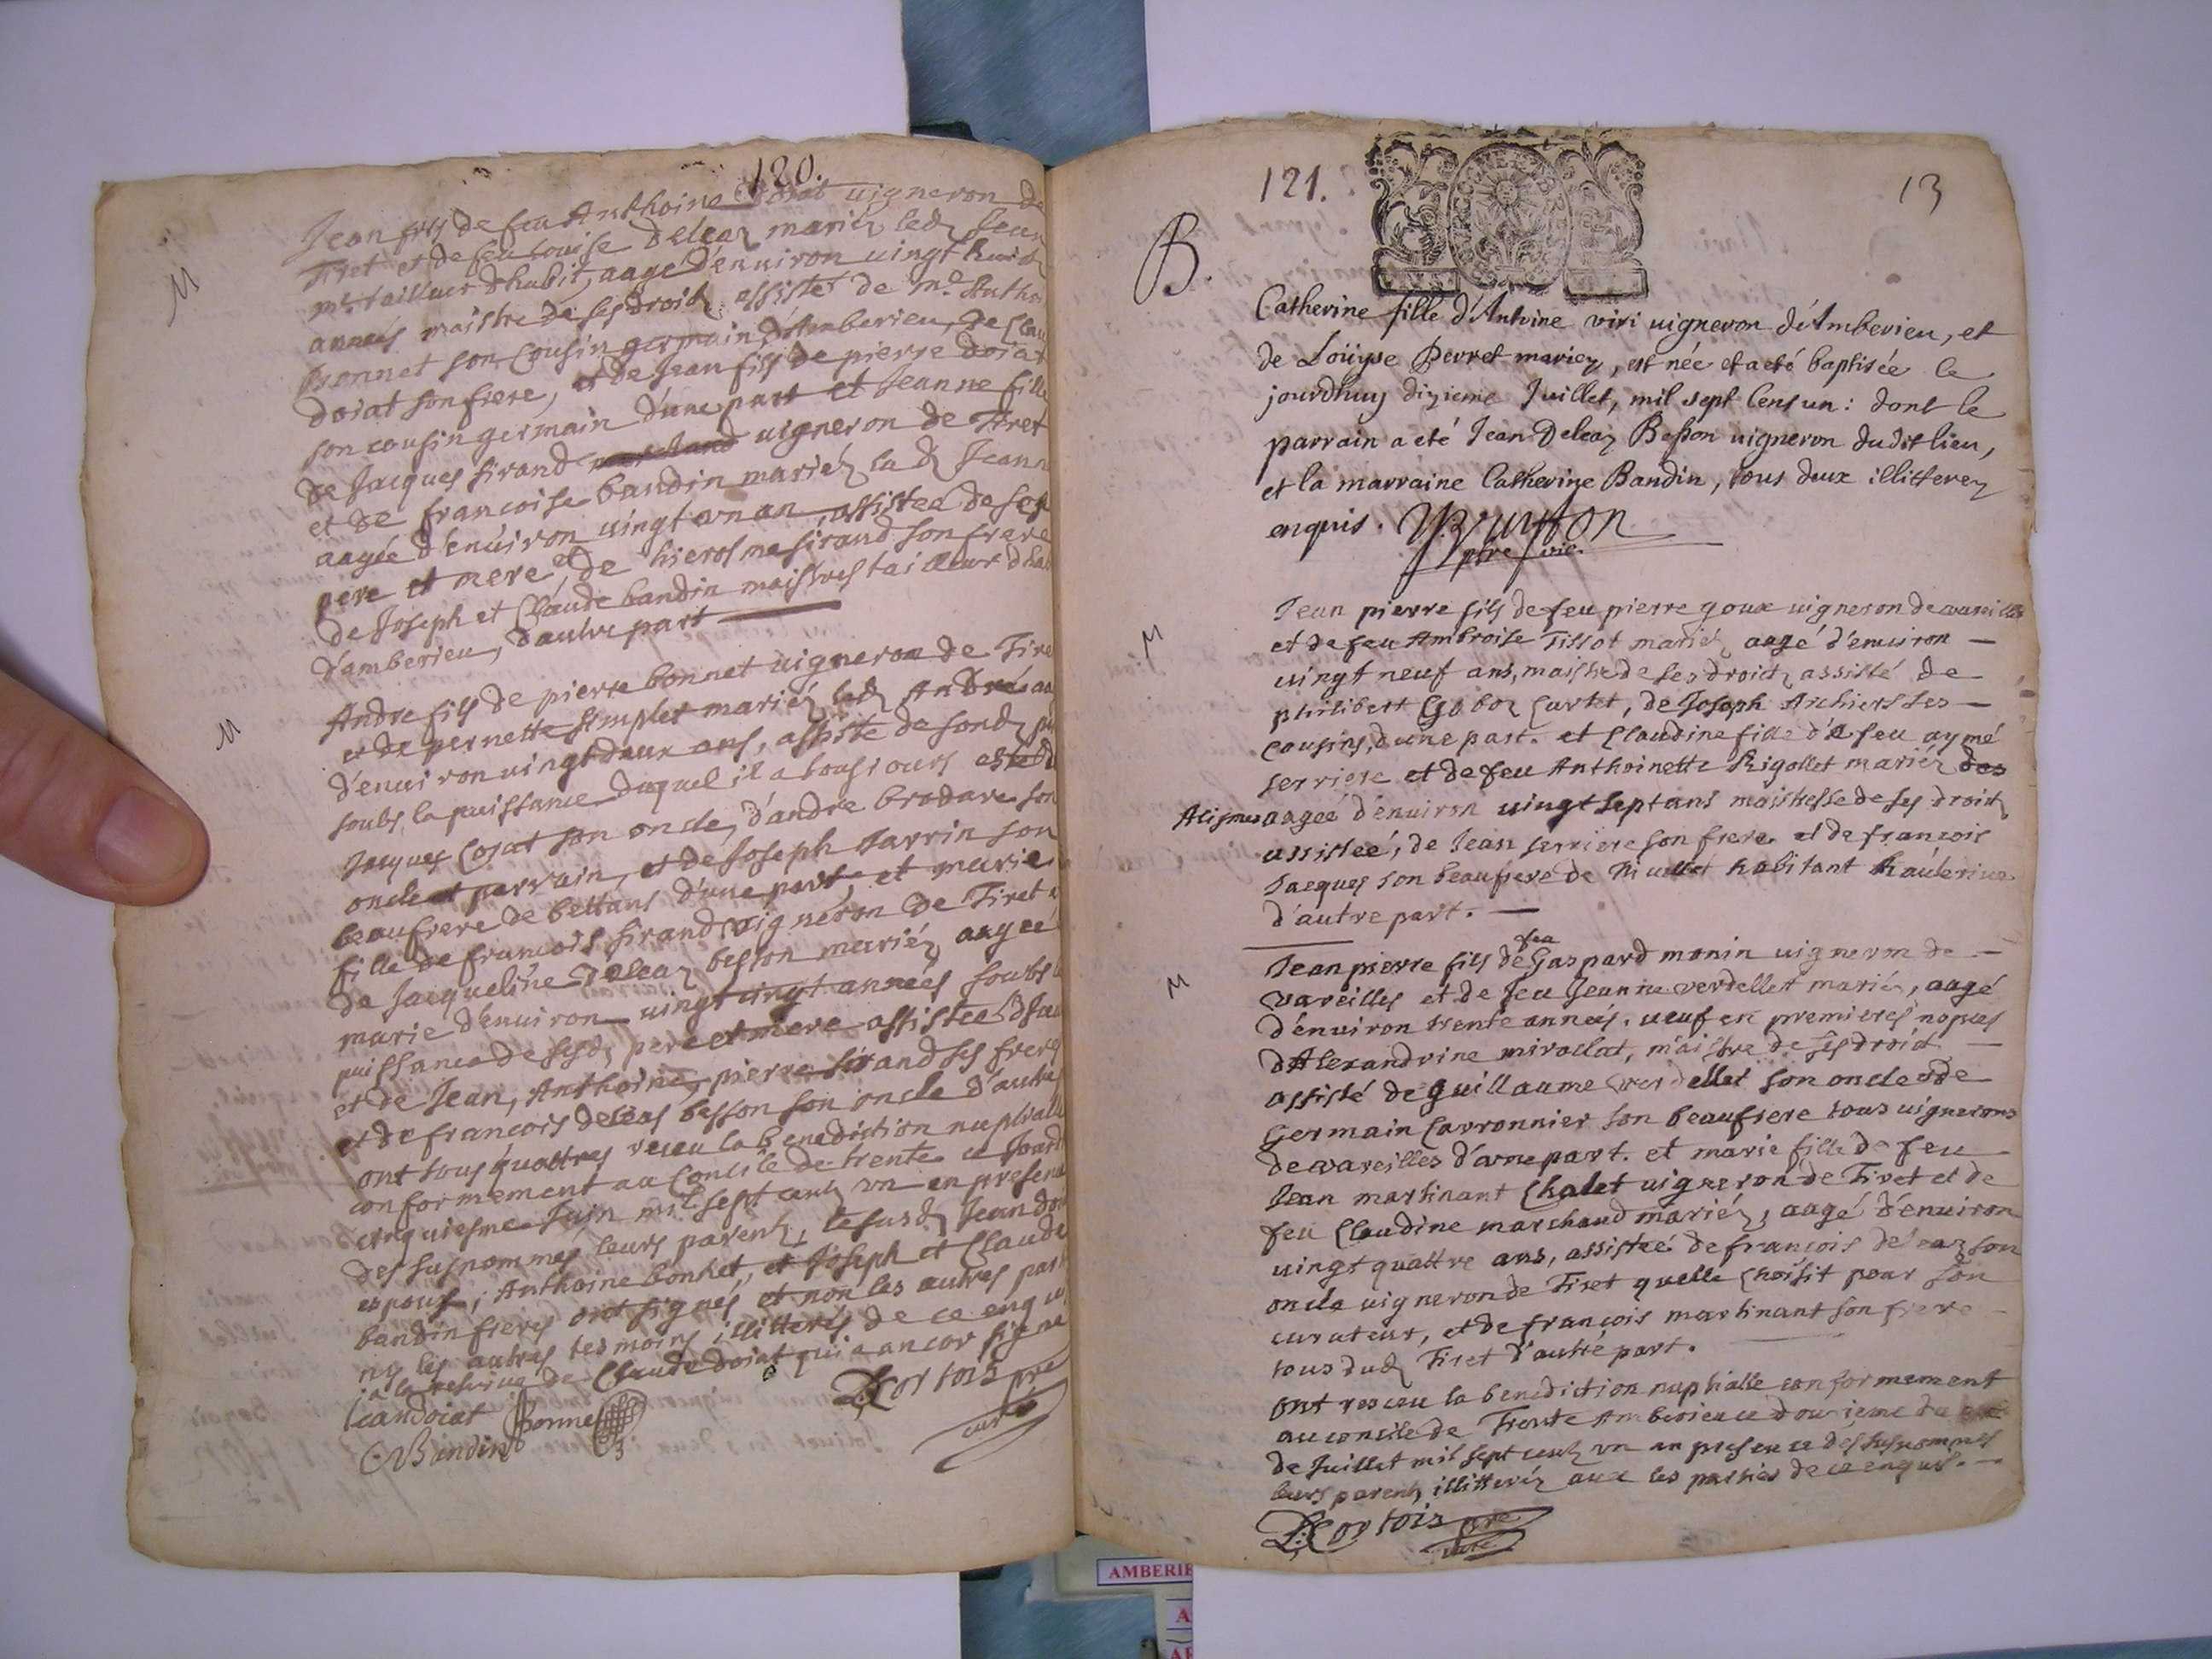 120.
Jean fils de feu Anthoine doiat vigneron de
Tiret et de feu Louise Deleaz mariéz led Jean
mre tailleur dhabit, aagé d'enuiron uingt huict
années maistre de ses droictz assisté de mre Antho
bonnet son cousin germain d'Amberieu, de Clau
doiat son frere, et de Jean fils de pierre doiat
son cousin germain d'une part et Jeanne fille
de Jacques sirand uigneron de Tiret
et de francoise bandin mariéz lad Jeann
aagée d'enuiron uingt vn an, assistée de ses
pere et mere, et de hierosme sirand son frere
de Joseph et Claude bandin maistres tailleur dhab
d'amberieu, d'autre part
M
Andre fils de pierre bonnet uigneron de Tire
et de pernette simplet mariéz led André aa
d'enuiron uingt deux ans, assisté de sond p
soubs la puissance duquel il a tousiours esté
Jacques Cojat son oncle, d'andré brodare son
oncle et parrain, et de Joseph Jarrin son
beaufrere de bettans d'une part, et marie
fille de francois sirand vigneron de Tiret
de Jacqueline Deleaz besson mariéz aagée
marie d'enuiron uingt cinq années soubs la
puissance de sesd pere et mere assistée d
et de Jean, Anthoine, pierre sirand ses freres
et de francois deleas besson son oncle d'autre
ont tous quattres receu la benediction nuptialle
conformement au Concile de trente ce jourd
cinquiesme Juin mil sept centz vn en presence
des susnommes leurs parentz, lesusd Jean doi
espoux, Anthoine bonnet, et Joseph et Claude
bandin freres ont signés et non les autres par
ny les autres tesmoins illitterés de ce enquis
a la reserve de Claude doiat qui a ancor signé
Jean doiat Bonnet
C Bandin
Cortois pre
curé
M
121.
13
B.
Catherine fille d'Antoine viri uigneron d'Amberieu, et
de Loüyse Perret mariez, est née et a eté baptisée le
jourdhuy dizieme Juillet, mil sept cens un: dont le
parrain a eté Jean Deleaz Besson uigneron dudit lieu,
et la marraine Catherine Bandin, tous deux illitterez
enquis.
ptre vic.
M
Jean pierre fils de feu pierre goux uigneron de vareilles
et de feu Ambroise Tissot mariéz aagé d'enuiron
uingt neuf ans, maistre de ses droictz assisté de
philibert Cartet, de Joseph Archiers ses
cousins, d'une part. et Claudine fille de feu aymé
serriere et de feu Anthoinette Rigollet mariéz des
aageé d'enuiron uingt sept ans maistresse de ses droictz
assisteé, de Jean serriere son frere et de francois
Jacques son beaufrere de habitant
d'autre part.
M
Jean pierre fils de feu Gaspard monin uigneron de
vareilles et de feu Jeanne verdellet mariéz, aagé
d'enuiron trente années. ueuf en premieres nopces
d'Alexandrine miroclat, maistre de ses droict
assisté de guillaume verdellet son oncle et de
Germain Carronnier son beaufrere tous uignerons
de vareilles d'une part. et marie fille de feu
Jean martinant Chalet uigneron de Tiret et de
feu Claudine marchand mariéz, aagé d'enuiron
uingt quattre ans, assisteé de francois deleaz son
oncle uigneron de Tiret quelle choisit pour son
curateur, et de francois martinant son frere
tous dud Tiret d'autre part.
ont resceu la benediction nuptialle conformement
au concile de Trente Amberieu ce douzieme du
de Juillet mil sept centz vn en presence des susnommes
leurs parentz illitteréz auec les parties de ce enquis.
Cortois pre
curé
AMBERIE